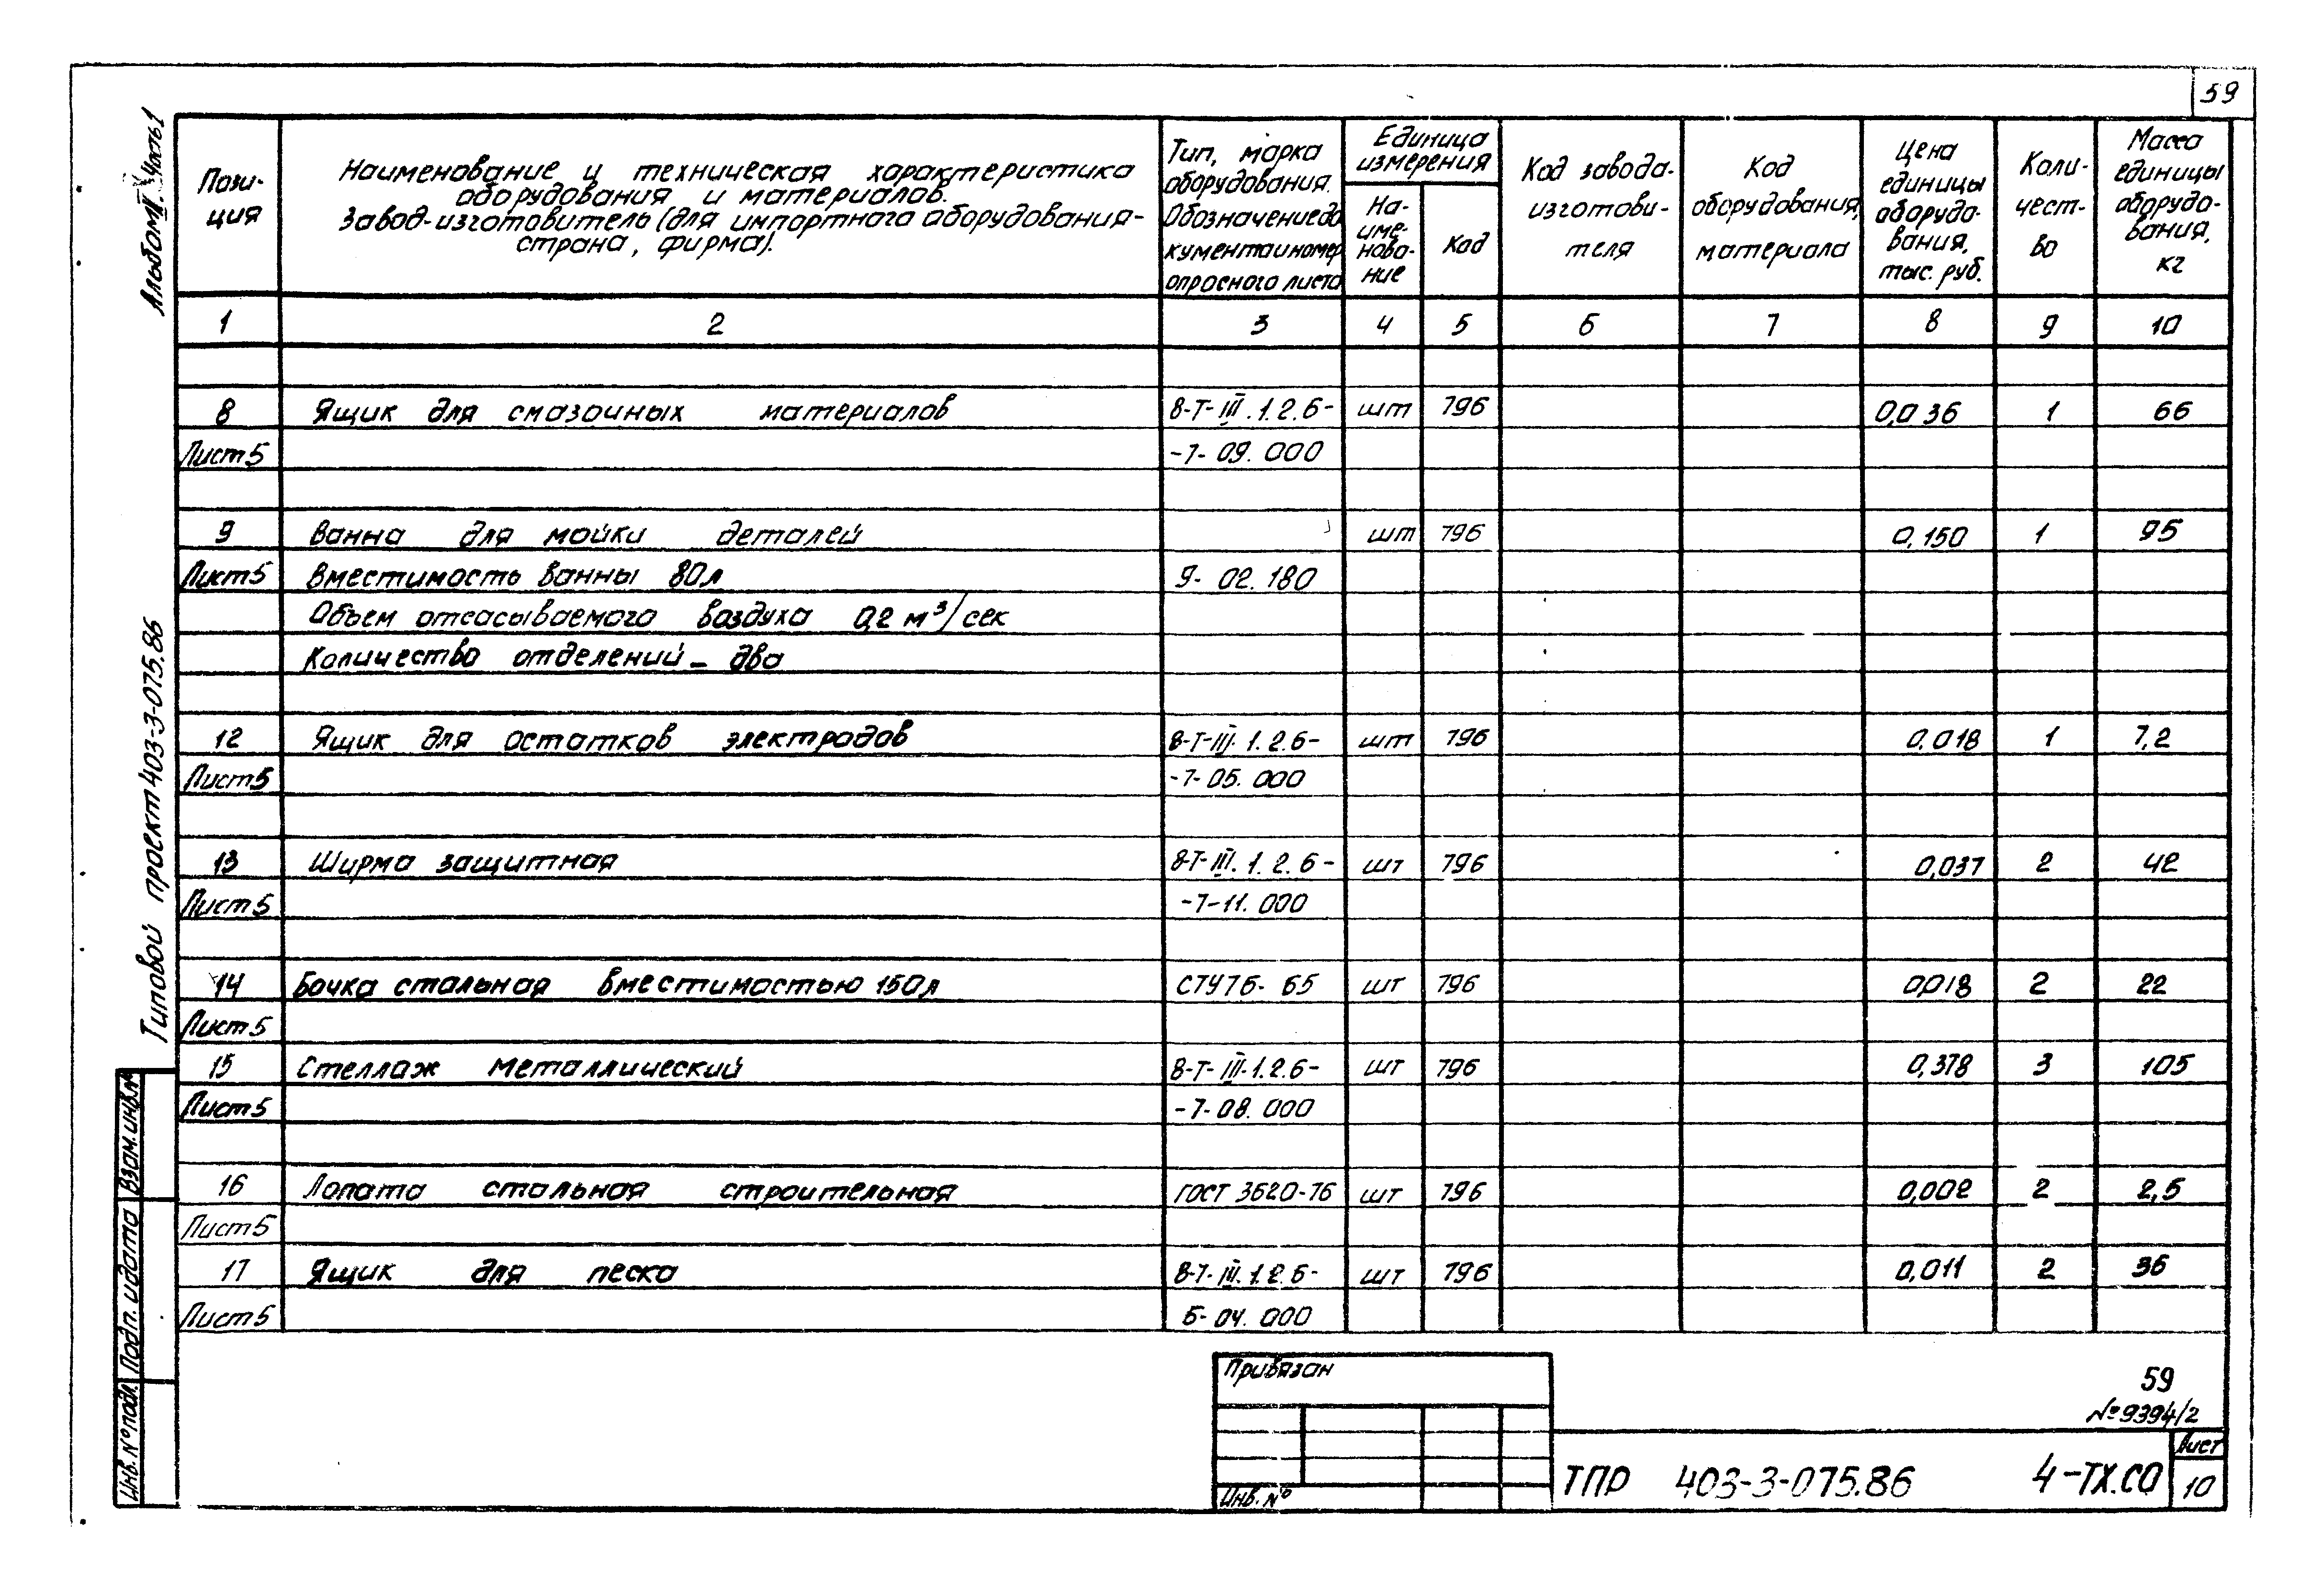 59
Альбом V. Часть 1
Типовой проект 403-3-075.86
Пози-
ция
Наименование и техническая характеристика
оборудования и материалов.
Завод-изготовитель (для импортного оборудования-
страна, фирма).
Тип, марка
оборудования.
Обозначение до
кумента и номер
опросного листа
Единица
измерения
На-
име-
нова-
ние
Код
Код завода-
изготови-
теля
Код
оборудования,
материала
Цена
единицы
оборудо-
вания,
тыс. руб.
Коли-
чест-
во
Масса
единицы
оборудо-
вания,
кг
1 2 3 4 5 6 7 8 9 10
8 Ящик для смазочных материалов 8-Т-III.1.2.6- шт 796 0,036 1 66
Лист 5 -7-09.000
9 Ванна для мойки деталей шт 796 0,150 1 95
Лист 5 Вместимость ванны 80л 9-02.180
Объем отсасываемого воздуха 0,2 м³/сек
Количество отделений - два
12 Ящик для остатков электродов 8-Т-III.1.2.6- шт 796 0,018 1 7,2
Лист 5 -7-05.000
13 Ширма защитная 8-Т-III.1.2.6- шт 796 0,037 2 42
Лист 5 -7-11.000
14 Бочка стальная вместимостью 150л СТУ76-65 шт 796 0,018 2 22
Лист 5
15 Стеллаж металлический 8-Т-III.1.2.6- шт 796 0,378 3 105
Лист 5 -7-08.000
16 Лопата стальная строительная ГОСТ 3620-76 шт 796 0,002 2 2,5
Лист 5
17 Ящик для песка 8-Т-III.1.2.6- шт 796 0,011 2 36
Лист 5 6-04.000
Взам. инв. №
Подп. и дата
Инв. № подл.
Привязан
Инв. №
59
№ 9394/2
ТПР 403-3-075.86 4-ТХ.СО
Лист
10